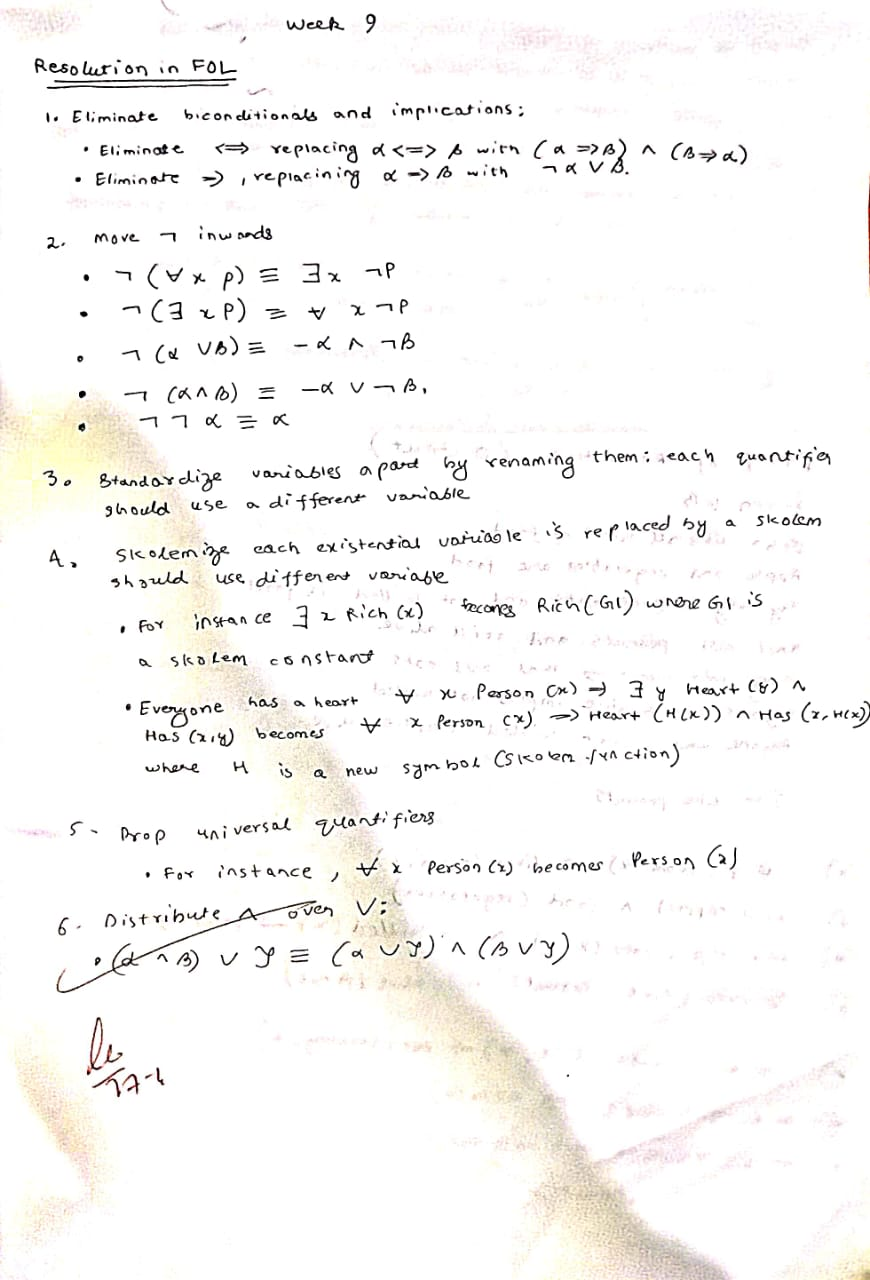 Week 9
Resolution in FOL
1. Eliminate biconditionals and implications:
• Eliminate <=> replacing α <=> β with (α => β) ∧ (β => α)
• Eliminate =>, replacining α => β with ¬ α ∨ β.
2. Move ¬ inwards
• ¬ (∀ x p) ≡ ∃ x ¬P
• ¬ (∃ x P) ≡ ∀ x ¬P
• ¬ (α ∨ β) ≡ -α ∧ ¬β
• ¬ (α ∧ β) ≡ -α ∨ ¬ β,
• ¬ ¬ α ≡ α
3. Standardize variables apart by renaming them: each quantifier
should use a different variable
4. Skolemize each existential variable is replaced by a skolem
should use different variable
• For instance ∃ x Rich (x) becomes Rich (G1) where G1 is
a skolem constant
• Everyone has a heart ∀ x Person (x) => ∃ y Heart (y) ∧
Has (x, y) becomes ∀ x Person (x) => Heart (H(x)) ∧ Has (x, H(x))
where H is a new symbol (Skolem function)
5- Drop universal quantifiers
• For instance, ∀ x Person (x) becomes Person (x)
6. Distribute ∧ over ∨:
• (α ∧ β) ∨ γ ≡ (α ∨ γ) ∧ (β ∨ γ)